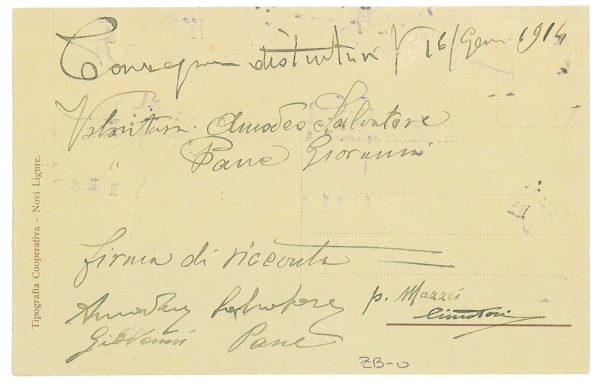 Consegna distintivi V 16/Genn 1914
Volontari Amodeo Salvatore
" Pane Giovanni
firma di ricevuta
Amodeo Salvatore
Giovanni Pane
p. Mazzei
ZB-0
Tipografia Cooperativa - Novi Ligure.